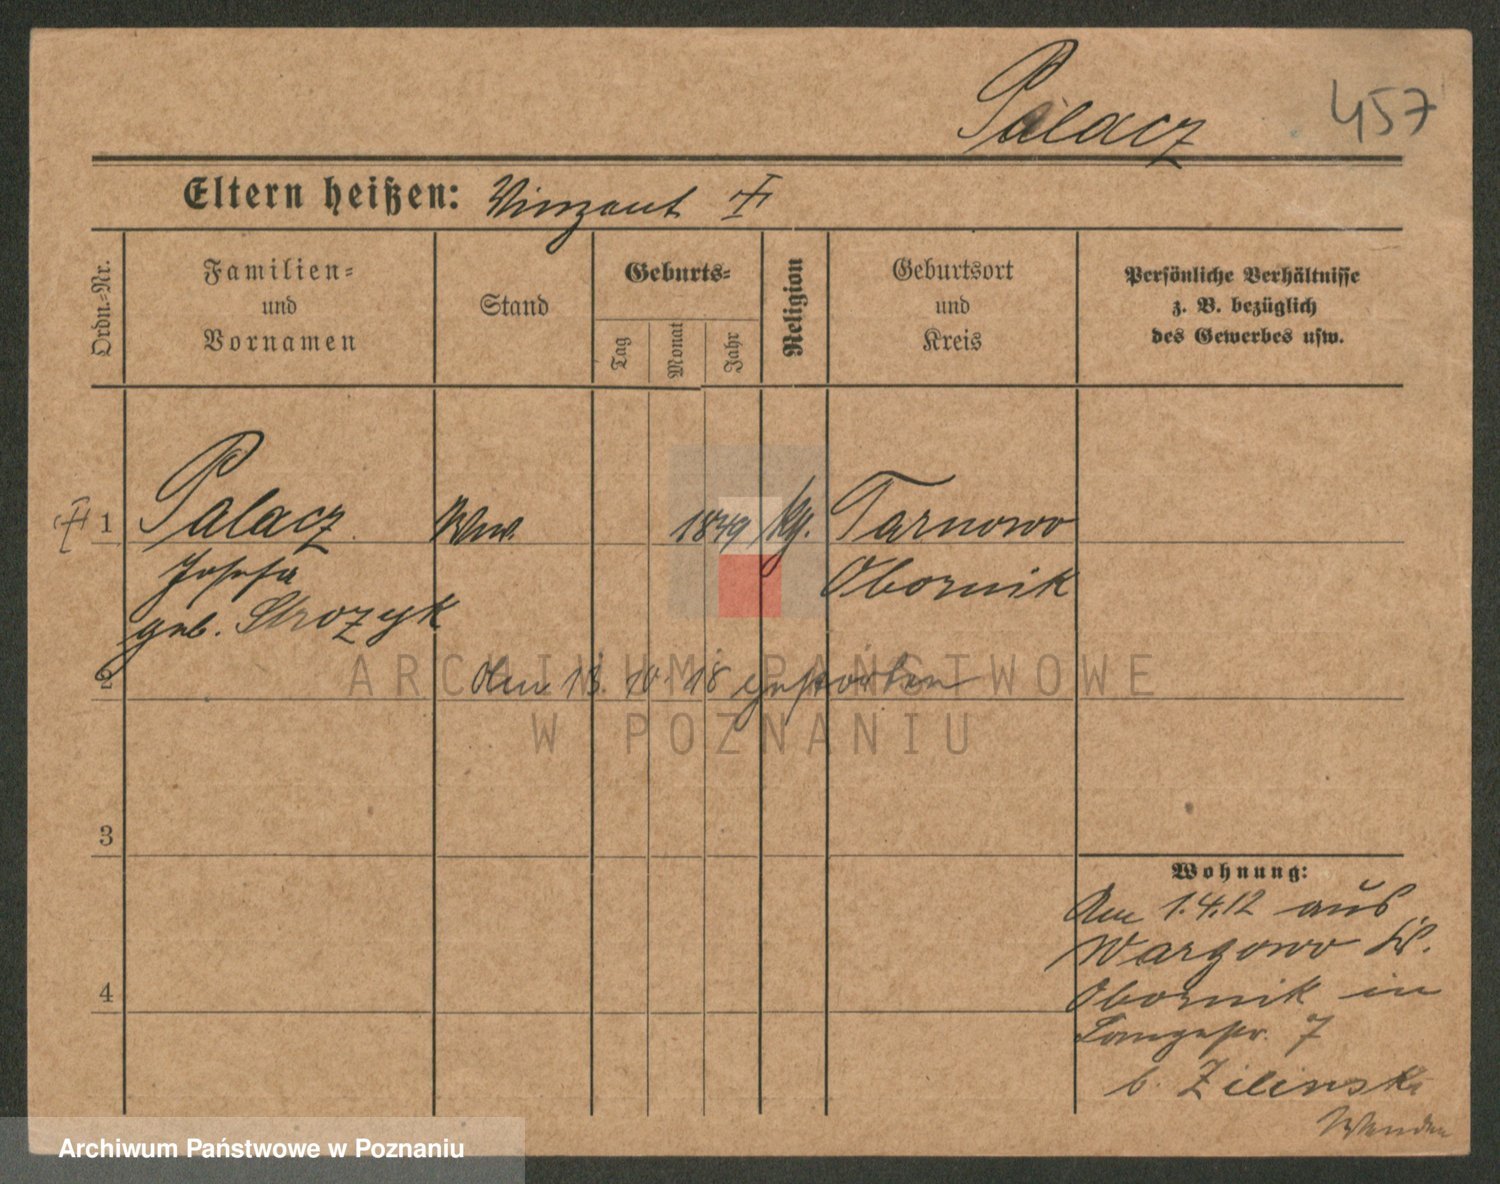 Palacz 457
Eltern heißen: Vinzent †
Ordn.-Nr.
Familien-
und
Vornamen
Stand
Geburts-
Tag
Monat
Jahr
Religion
Geburtsort
und
Kreis
Persönliche Verhältnisse
z. B. bezüglich
des Gewerbes usw.
† 1 Palacz Ww. 1849 kg. Tarnowo
Josefa Obornik
geb. Strozyk
2 den 13. 10. 18 gestorben
3
4
Wohnung:
Am 1.4.12 aus
Wargowo Kr.
Obornik in
Langestr. 7
b. Zilinski
Wenden
ARCHIWUM PAŃSTWOWE
W POZNANIU
Archiwum Państwowe w Poznaniu